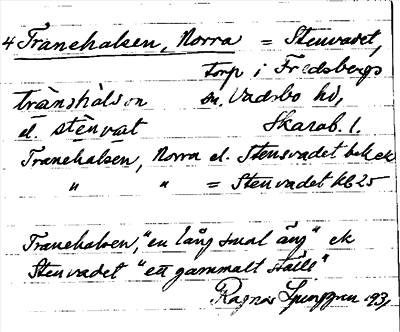 4 Tranehalsen, Norra = Stenvadet,
torp i Fredsbergs
tránshàlsøn sn, Vadsbo hd,
el. stènvat Skarab. l.
Tranehalsen, Norra el. Stensvadet bebek
" " = Stenvadet KB 25
Tranehalsen, "en lång smal äng" ek
Stenvadet "ett gammalt ställe"
Ragnar Ljunggren 193